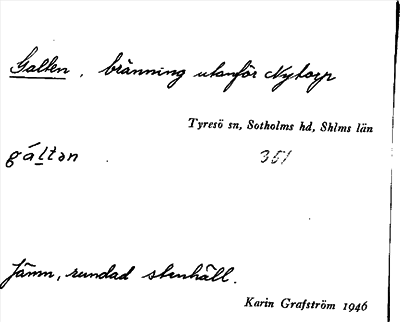 Galten, bränning utanför Nytorp
Tyresö sn, Sotholms hd, Sthlms län
gáltən 351
Jämn, rundad stenhäll.
Karin Grafström 1946